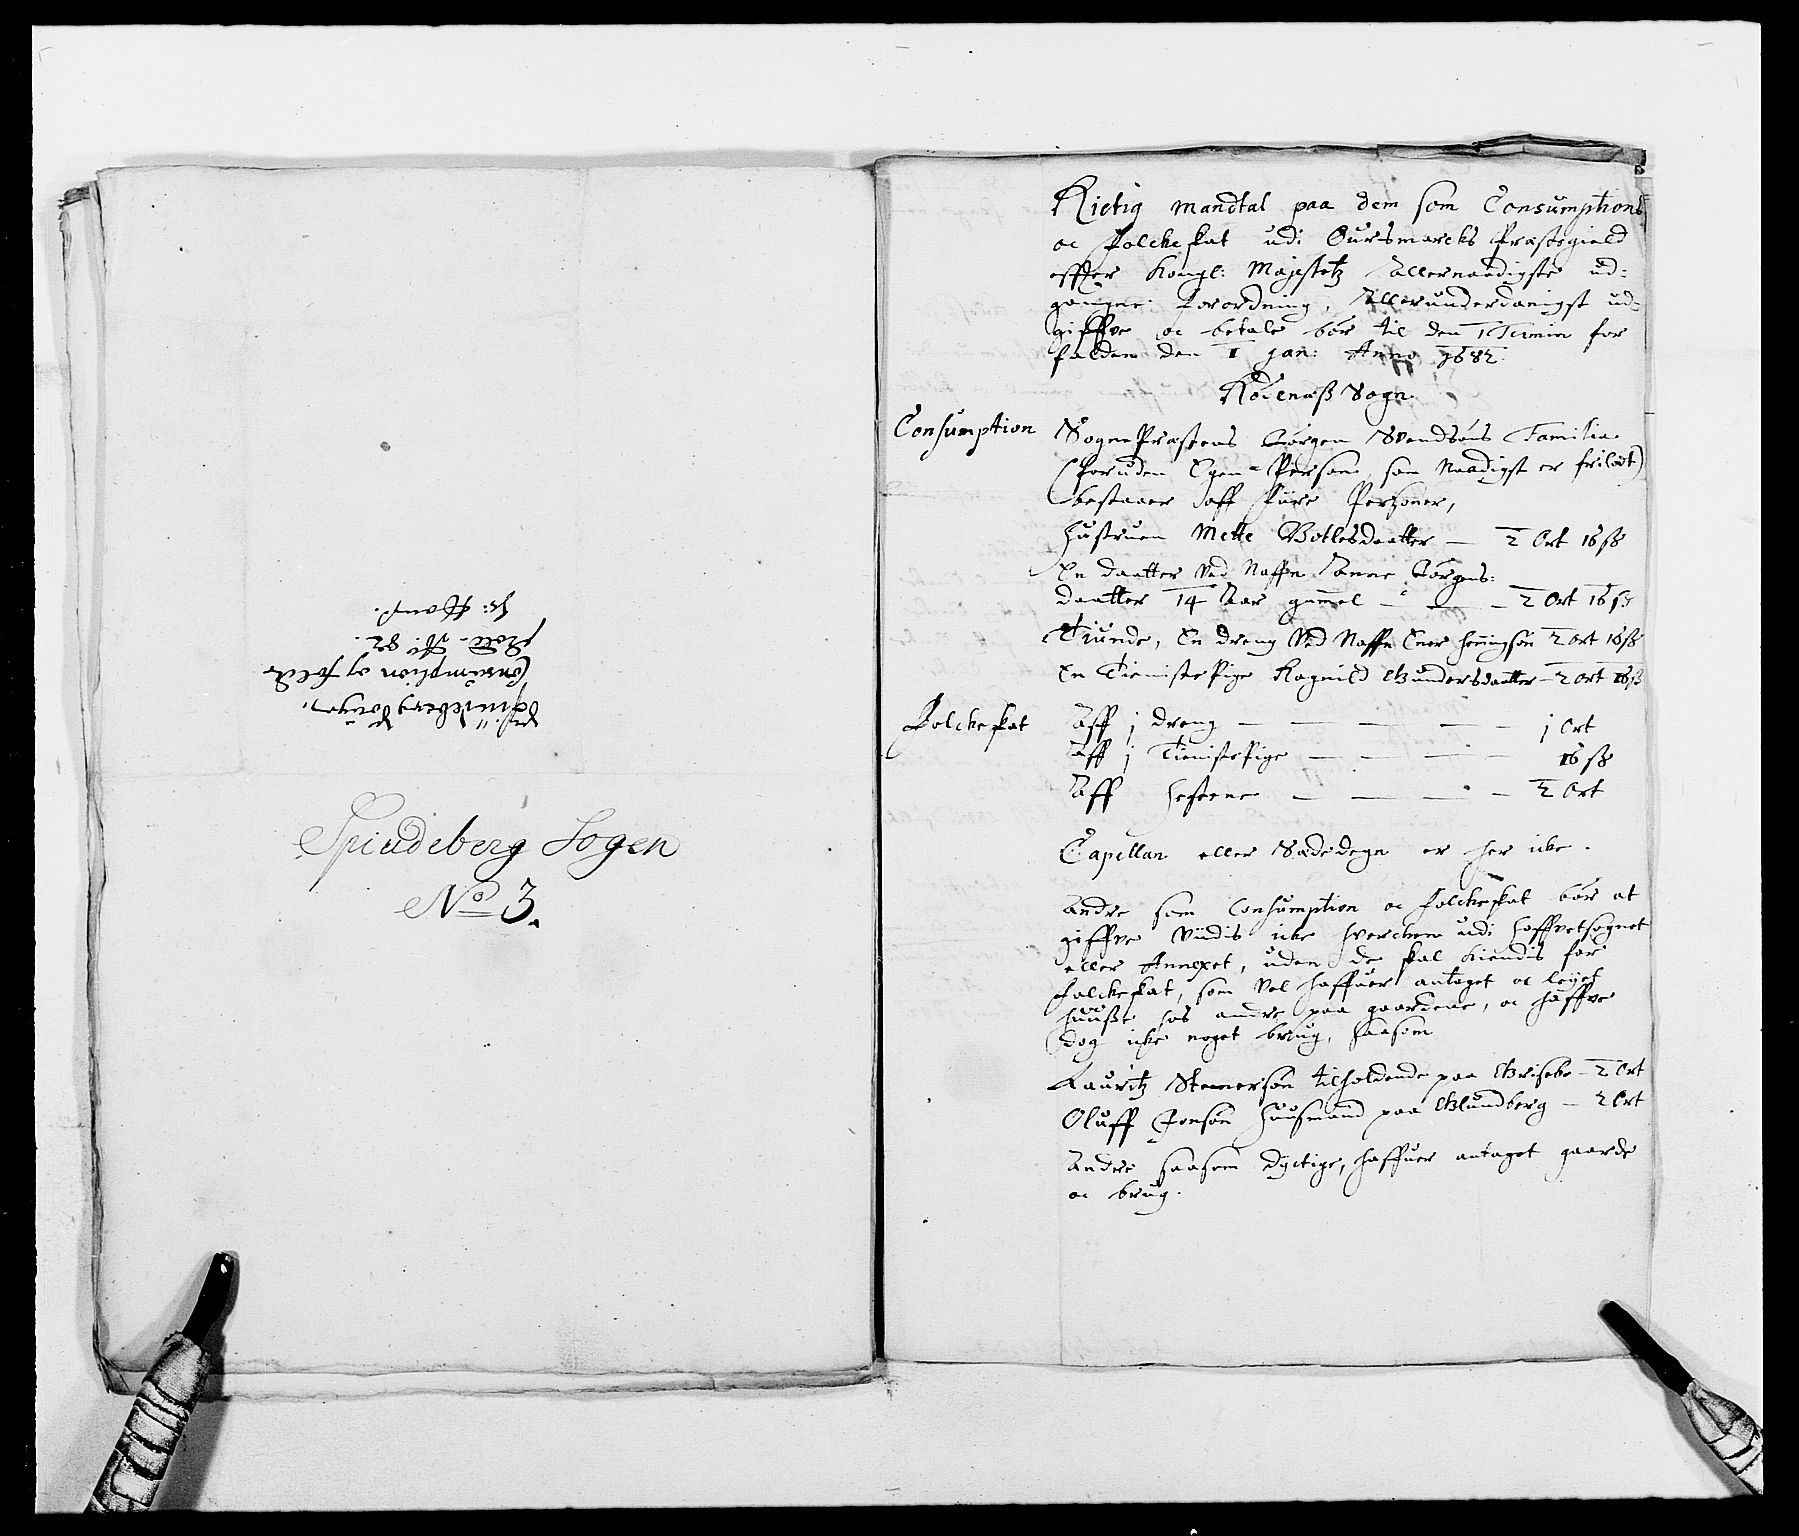 Spindeberg Sogen
No 3.
Spindeberg Sougen
Consumption og folcke
Rictig mandtal paa dem som Consumptions
oc Folckeskat udi Oursmarcks Præstegield
effter Kongl: Majestetz allernaadigste ud=
gangne forordning, Allerunderdanigst ud=
giffve oc betale bør til den 1 Termin for
falden den 1 Jan: Anno 1682.
Rødenæß Sogn.
Consumption
SognePræstens Jørgen Svendsøns Familia
(foruden Egen Person, som Naadigst er friladt)
bestaaer aff fiire Personer,
Hustruen Mette Botlesdaatter — 2 Ort 16 ß
En daatter ved Naffn Anne Jørgens:
daatter 14 Aar gammel — 2 Ort 16 ß
Tiunde, En dreng ved Naffn Henningsøn 2 Ort 16 ß
En TienistePige Ragnild Gundersdaatter — 2 Ort 16 ß
Folckeskat
Aff j dreng — j Ort
Aff j TienistePige — 16 ß
Aff hestene — 2 Ort
Capellan eller Sædedegn er her icke.
Andre som Consumption oc folckeskat bør at
giffve viidis icke hvercken udi hoffvetsognet
eller Annexet, uden de skal kiendis for
folckeskat, som vel haffuer antaget oc leyet
huuße hos andre paa gaardene, oc haffve
dog icke noget brug, saasom
Lauritz Stenersøn tilholdende paa Griisebo — 2 Ort
Oluff Jonsøn huusmand paa Glundberg — 2 Ort
Andre saasom dyctige, haffuer antaget gaarde
oc brug.